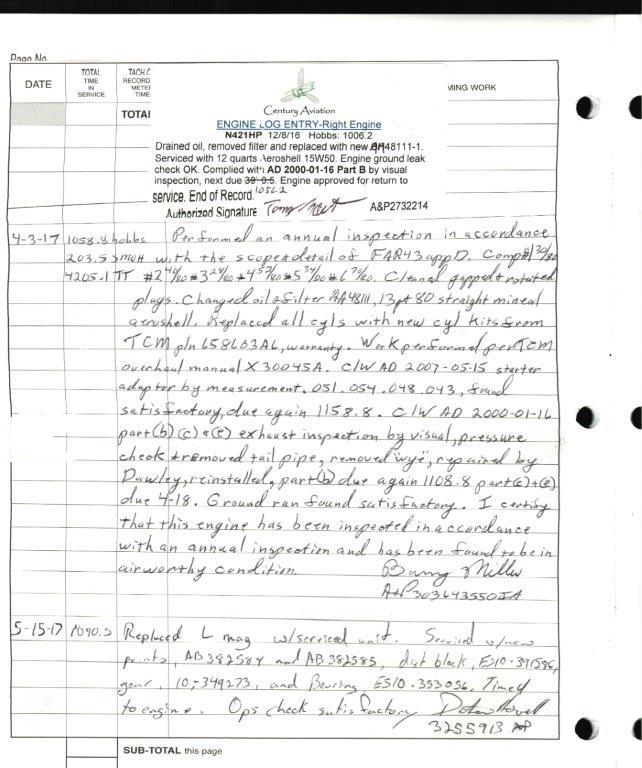 Page No.
DATE
TOTAL TIME IN SERVICE
TACH
RECORD
METE
TIME
MING WORK
TOTAL
Century Aviation
ENGINE LOG ENTRY-Right Engine
N421HP 12/8/16 Hobbs: 1006.2
Drained oil, removed filter and replaced with new AA48111-1.
Serviced with 12 quarts Aeroshell 15W50. Engine ground leak
check OK. Complied with AD 2000-01-16 Part B by visual
inspection, next due 1056.2 Engine approved for return to
service. End of Record.
Authorized Signature A&P2732214
4-3-17 1058.8 hobbs Performed an annual inspection in accordance
203.5 SMOH with the scope & detail of FAR 43 app D. Comp #1 30/80
4205.1 TT #2 44/80 #3 28/80 #4 52/80 #5 34/80 #6 30/80. Cleaned gapped & rotated
plugs. Changed oil & filter AA48111, 13qt 80 straight mineral
aeroshell. Replaced all cyls with new cyl kits from
TCM p/n 658603A6, warranty. Work performed per TCM
overhaul manual X30045A. C/W AD 2007-05-15 starter
adaptor by measurement .051 .054 .048 .043, found
satisfactory, due again 1158.8. C/W AD 2000-01-16
part (b) (c) & (e) exhaust inspection by visual, pressure
check & removed tail pipe, removed "wye", repaired by
Dawley, reinstalled, part (b) due again 1108.8 part (c) & (e)
due 4-18. Ground run found satisfactory. I certify
that this engine has been inspected in accordance
with an annual inspection and has been found to be in
airworthy condition. Barry Miller
A&P303643550IA
5-15-17 1090.2 Replaced L mag w/serviced unit. Serviced w/new
points, AB382584 and AB382585, dist block, ES10-391586,
gear, 10-349273, and Bearing ES10-353056. Timed
to engine. Ops check satisfactory
3255913 AP
SUB-TOTAL this page